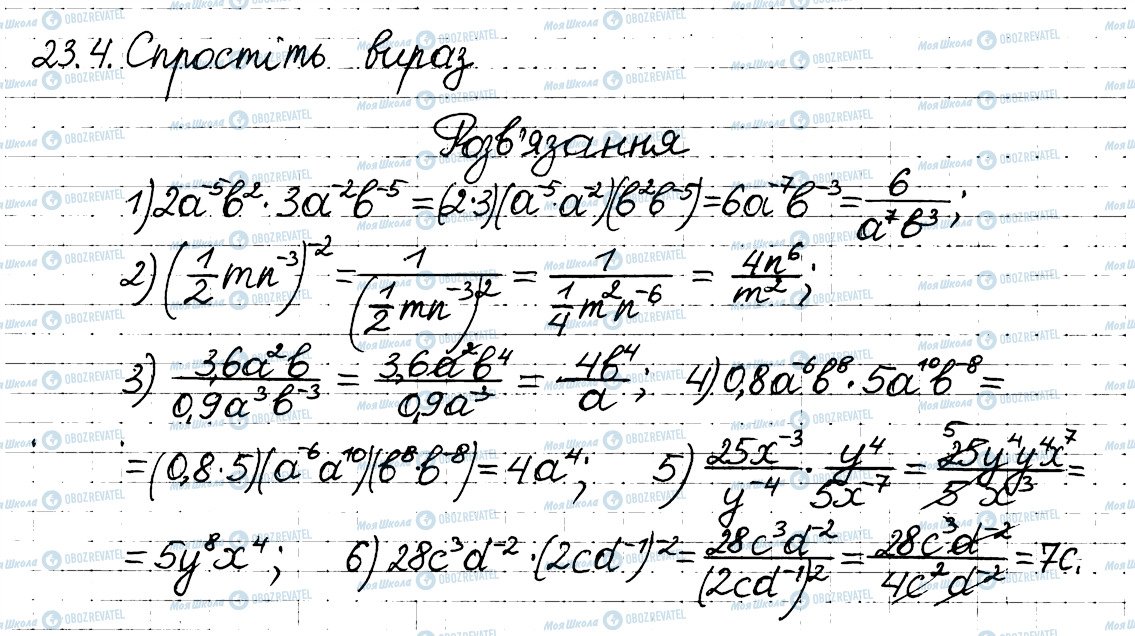 23.4. Спростіть вираз
Розв'язання
1) 2a⁻⁵b²·3a⁻²b⁻⁵=(2·3)(a⁻⁵·a⁻²)(b²b⁻⁵)=6a⁻⁷b⁻³=6/(a⁷b³);
2) (1/2 mn⁻³)⁻²=1/(1/2 mn⁻³)²=1/(1/4 m²n⁻⁶)=4n⁶/m²;
3) 3,6a²b/(0,9a³b⁻³)=3,6a²b⁴/(0,9a³)=4b⁴/a; 4) 0,8a⁻⁶b⁸·5a¹⁰b⁻⁸=
=(0,8·5)(a⁻⁶a¹⁰)(b⁸·b⁻⁸)=4a⁴; 5) 25x⁻³/y⁻⁴·y⁴/(5x⁻⁷)=25y⁴y⁴x⁷/(5x³)=
=5y⁸x⁴; 6) 28c³d⁻²·(2cd⁻¹)⁻²=28c³d⁻²/(2cd⁻¹)²=28c³d⁻²/(4c²d⁻²)=7c.